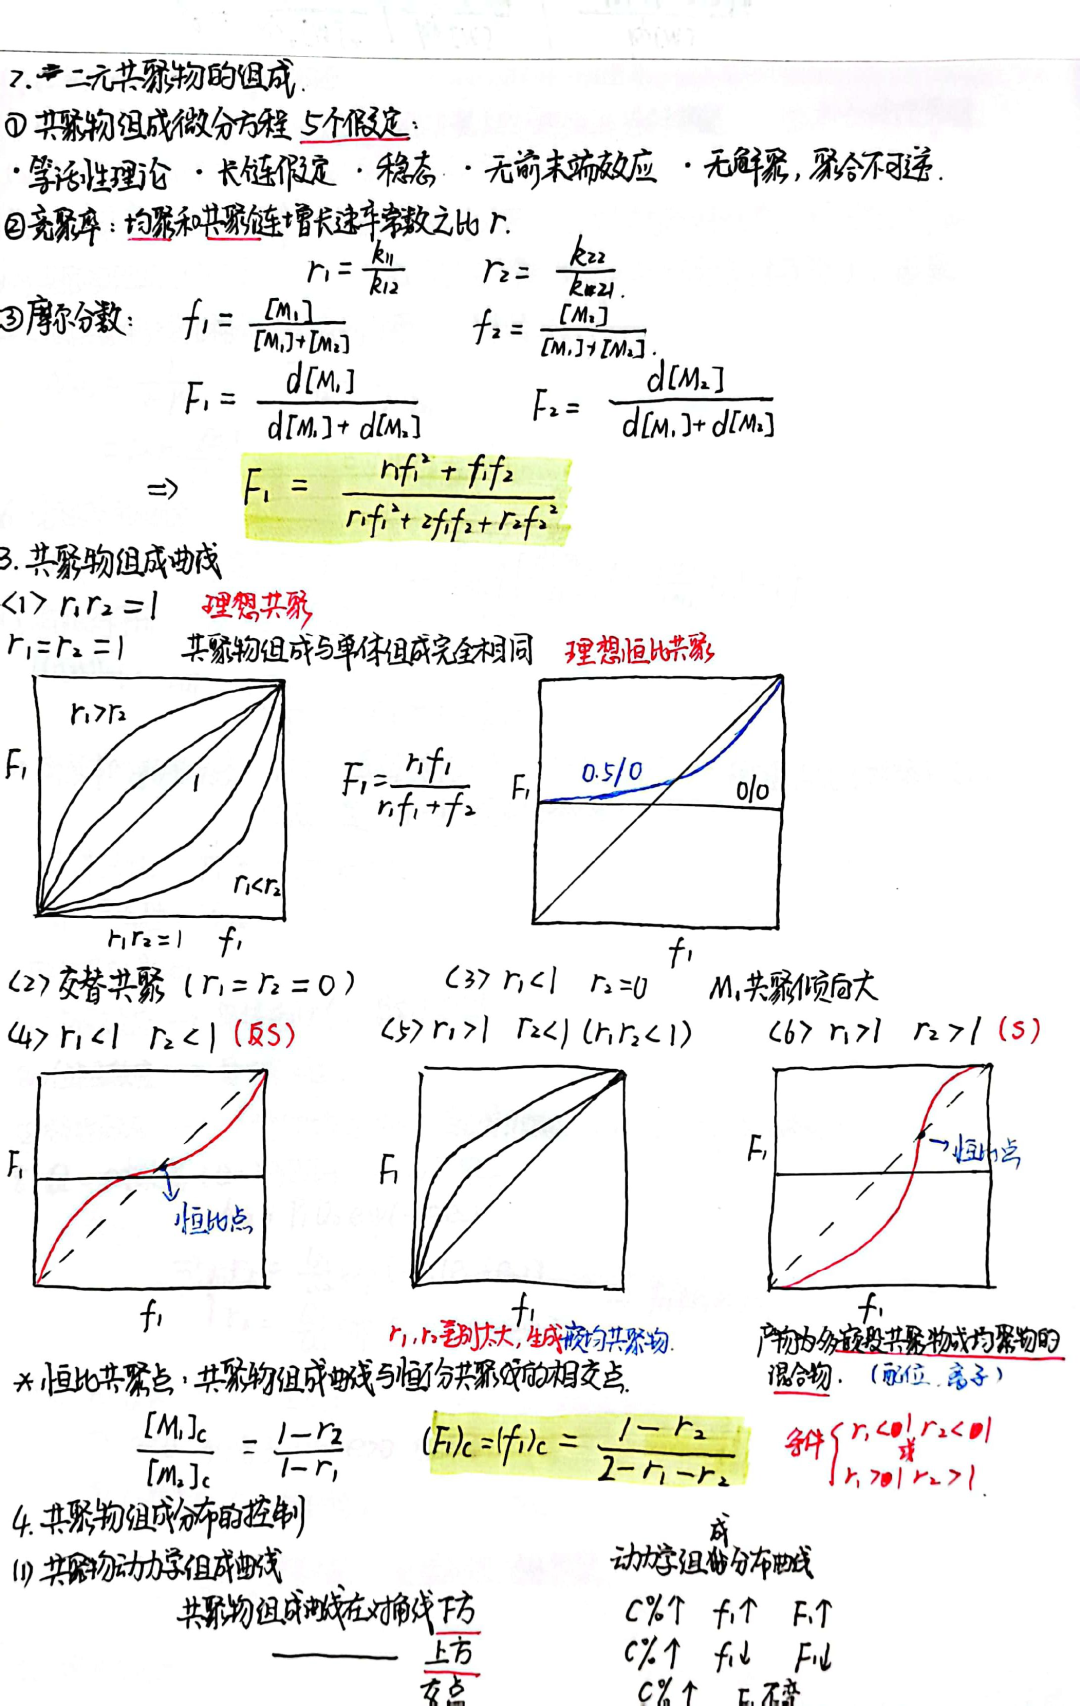 2. 二元共聚物的组成.
① 共聚物组成微分方程 5个假定:
· 等活性理论 · 长链假定 · 稳态 · 无前末端效应 · 无解聚, 聚合不可逆.
② 竞聚率: 均聚和共聚链增长速率常数之比 r.
r₁ = k₁₁/k₁₂ r₂ = k₂₂/k₂₁.
③ 摩尔分数: f₁ = [M₁]/([M₁]+[M₂]) f₂ = [M₂]/([M₁]+[M₂]).
F₁ = d[M₁]/(d[M₁]+d[M₂]) F₂ = d[M₂]/(d[M₁]+d[M₂])
⇒ F₁ = (r₁f₁²+f₁f₂)/(r₁f₁²+2f₁f₂+r₂f₂²)
3. 共聚物组成曲线
<1> r₁r₂=1 理想共聚
r₁=r₂=1 共聚物组成与单体组成完全相同 理想恒比共聚
r₁>r₂
F₁
1
r₁<r₂
r₁r₂=1 f₁
F₁ = r₁f₁/(r₁f₁+f₂)
F₁
0.5/0
0/0
f₁
<2> 交替共聚 (r₁=r₂=0) <3> r₁<1 r₂=0 M₁共聚倾向大
<4> r₁<1 r₂<1 (反S) <5> r₁>1 r₂<1 (r₁r₂<1) <6> r₁>1 r₂>1 (S)
F₁
恒比点
f₁
F₁
f₁
r₁, r₂差别太大, 生成嵌均共聚物.
F₁
恒比点
f₁
产物为多嵌段共聚物或均聚物的
混合物. (配位、离子)
* 恒比共聚点: 共聚物组成曲线与恒分共聚线的相交点.
[M₁]c/[M₂]c = (1-r₂)/(1-r₁) (F₁)c=(f₁)c = (1-r₂)/(2-r₁-r₂) 条件 { r₁<1 r₂<1
或
r₁>1 r₂>1.
4. 共聚物组成分布的控制
(1) 共聚物动力学组成曲线 动力学组成分布曲线
共聚物组成曲线在对角线下方 C%↑ f₁↑ F₁↑
—— 上方 C%↑ f₁↓ F₁↓
交点 C%↑ F₁不变